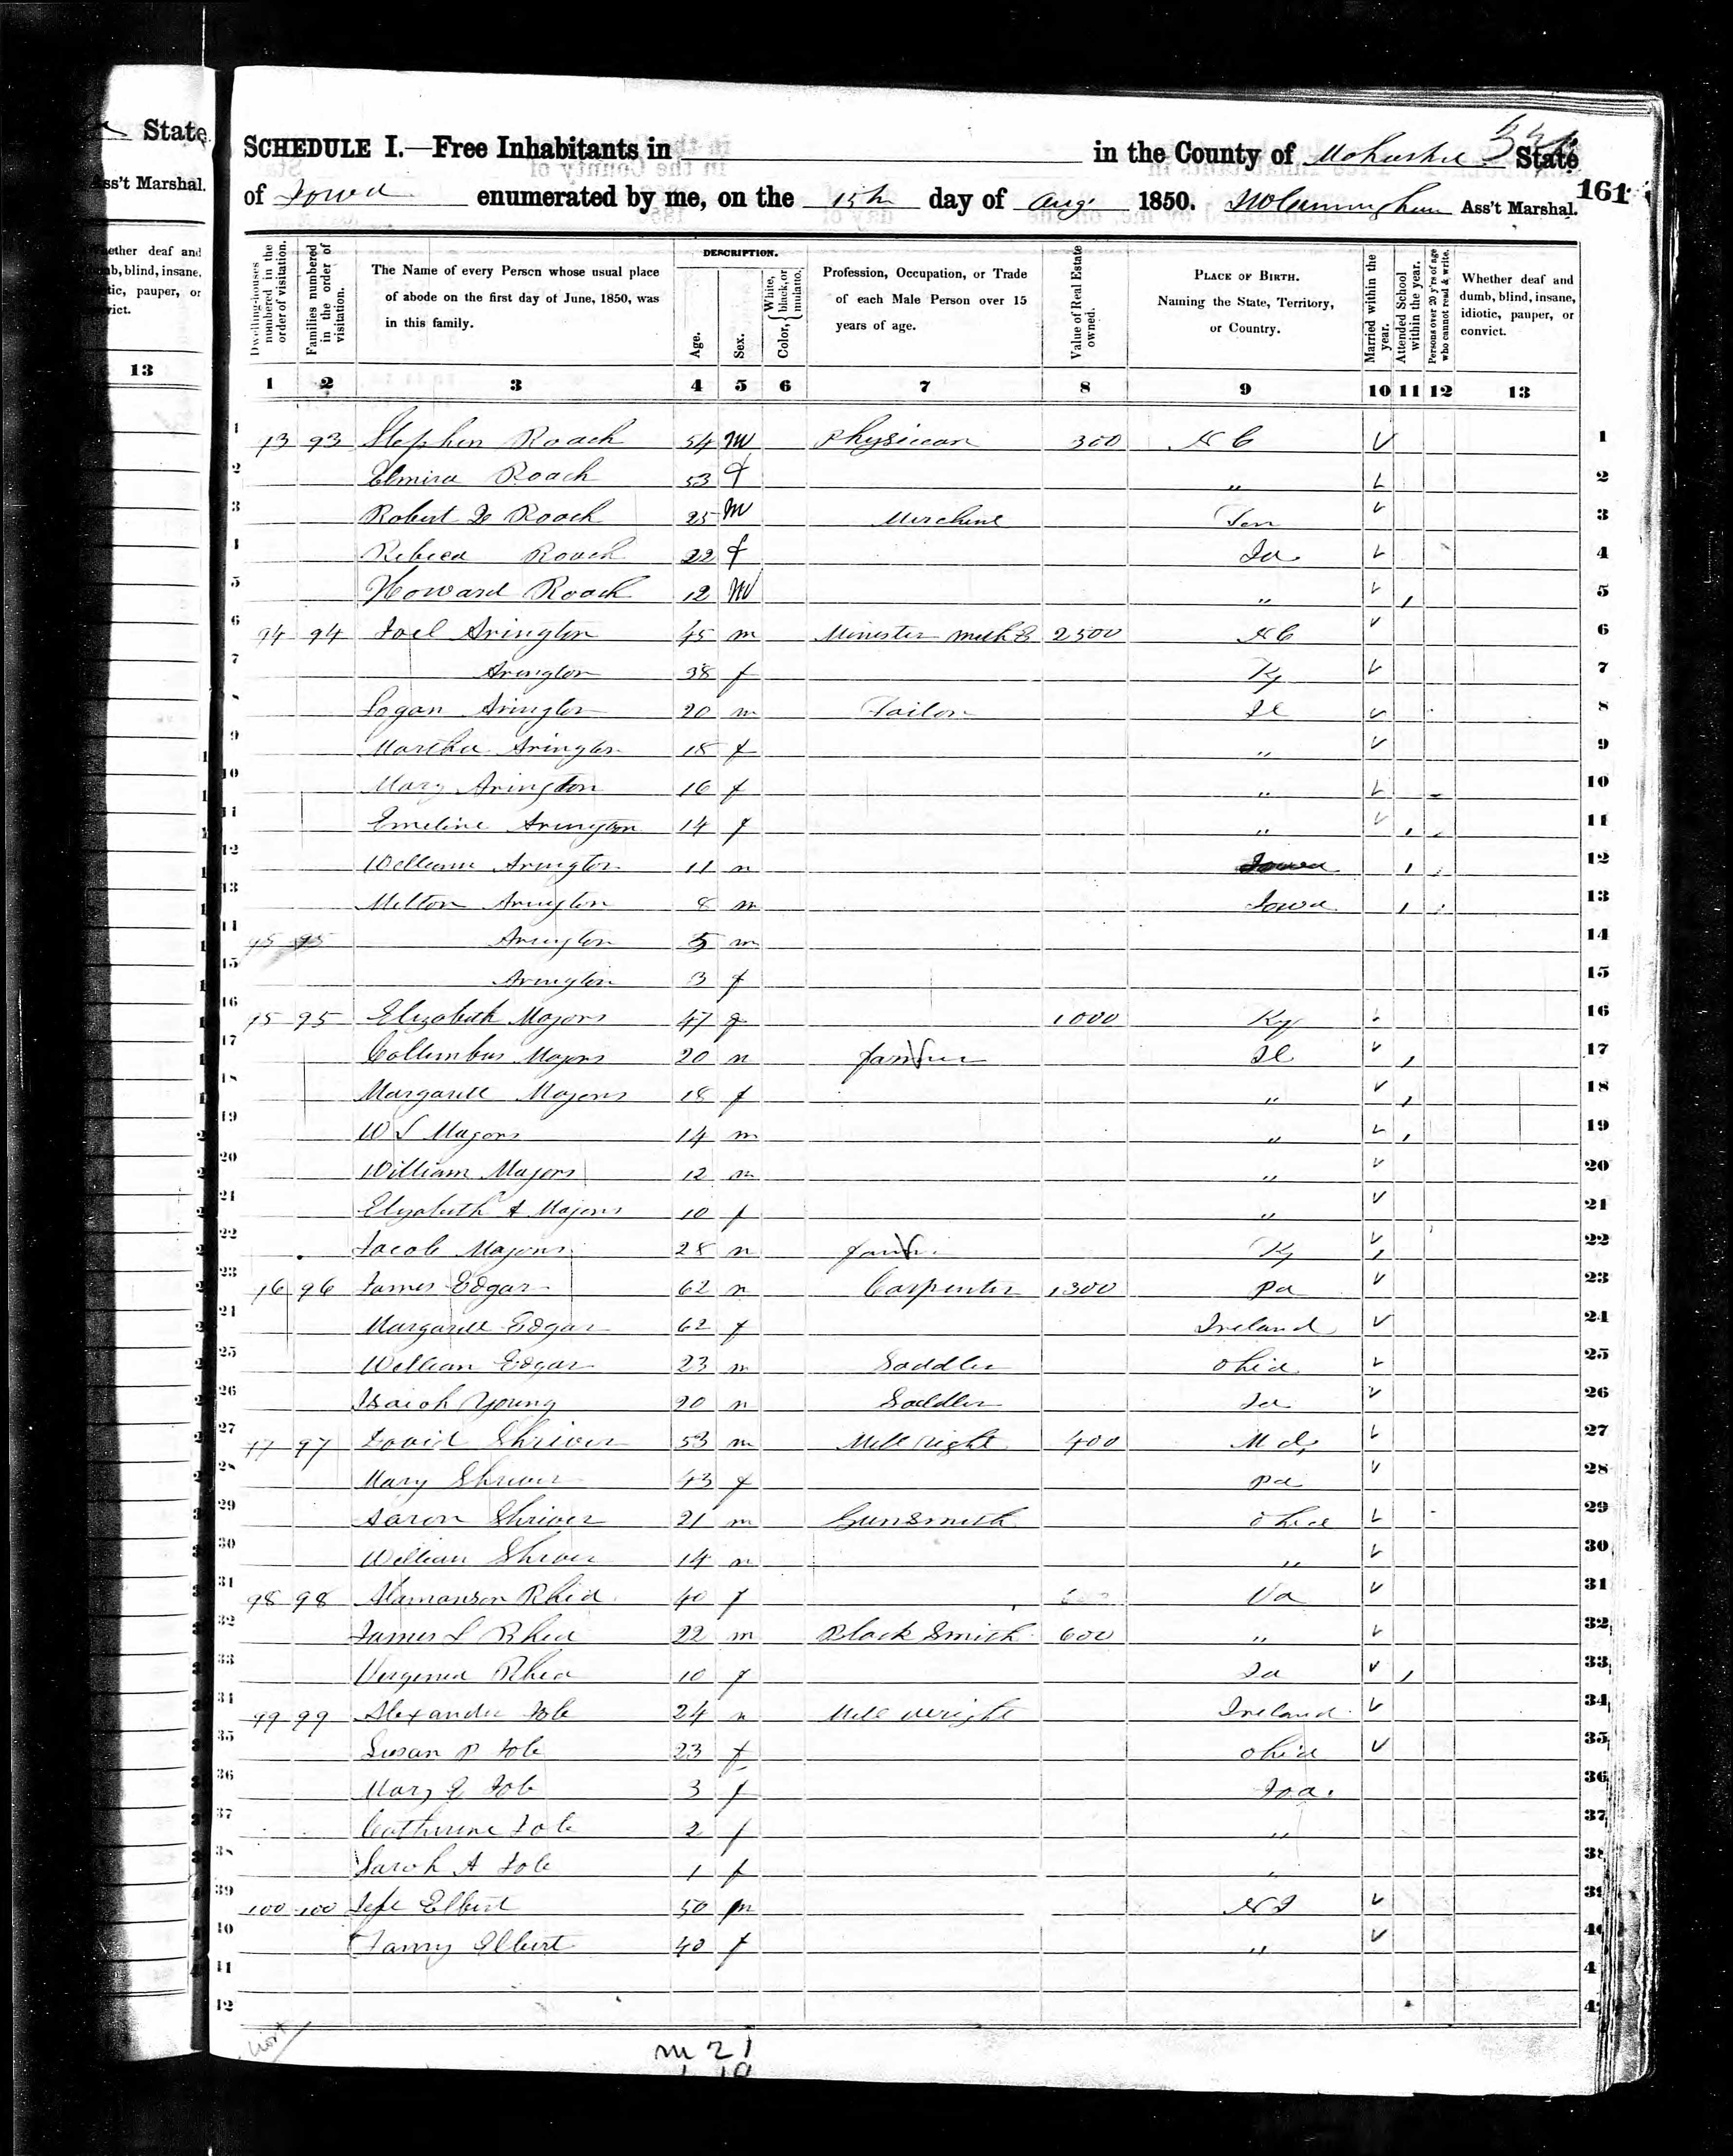 State
Ass't Marshal.
SCHEDULE I.—Free Inhabitants in in the County of State
of Iowa enumerated by me, on the 15th day of Aug. 1850. Ass't Marshal.
161
Dwelling-houses numbered in the order of visitation.
Families numbered in the order of visitation.
The Name of every Person whose usual place of abode on the first day of June, 1850, was in this family.
DESCRIPTION.
Age.
Sex.
Color, { White, black, or mulatto.
Profession, Occupation, or Trade of each Male Person over 15 years of age.
Value of Real Estate owned.
PLACE OF BIRTH. Naming the State, Territory, or Country.
Married within the year.
Attended School within the year.
Persons over 20 y'rs of age who cannot read & write.
Whether deaf and dumb, blind, insane, idiotic, pauper, or convict.
13
1 2 3 4 5 6 7 8 9 10 11 12 13
1 93 Stephen Roach 54 m Physician 300 N C 1
2 Elmira Roach 53 f " 2
3 Robert Roach 25 m Ten 3
4 Rebeca Roach 22 f Ia 4
5 Howard Roach 12 m " 5
6 94 94 Joel Arington 45 m Minister Meth E 2500 N C 6
7 Arington 38 f Ky 7
8 Logan Arington 20 m Tailor Il 8
9 Martha Arington 18 f " 9
10 Mary Arington 16 f " 10
11 Emeline Arington 14 f " 11
12 William Arington 11 m 12
13 Milton Arington 8 m Iowa 13
14 Arington 5 m 14
15 Arington 3 f 15
16 95 95 Elizabeth Majors 47 f 1000 Ky 16
17 Collumbus Majors 20 m Farmer Il 17
18 Margarett Majors 18 f " 18
19 W S Majors 14 m " 19
20 William Majors 12 m " 20
21 Elizabeth A Majors 10 f " 21
22 Jacob Majors 28 m Ky 22
23 96 96 James Edgar 62 m Carpenter 1300 Pa 23
24 Margarett Edgar 62 f Ireland 24
25 William Edgar 23 m Saddler Ohio 25
26 Isaiah Young 20 m Saddler Ia 26
27 97 97 David Shriver 53 m Mill Right 400 Md 27
28 Mary Shriver 43 f Pa 28
29 Aaron Shriver 21 m GunSmith Ohio 29
30 William Shriver 14 m " 30
31 98 98 Rhea 40 f Va 31
32 James S Rhea 22 m Black Smith 600 " 32
33 Vergenia Rhea 10 f Ia 33
34 99 99 Alexander 24 m Mill Wright Ireland 34
35 Susan P 23 f Ohio 35
36 Mary E 3 f Ioa. 36
37 Catherine 2 f " 37
38 Sarah A 1 f " 38
39 100 100 Elbert 50 m N J 39
40 Fanny Elbert 40 f " 40
41
42
m 21